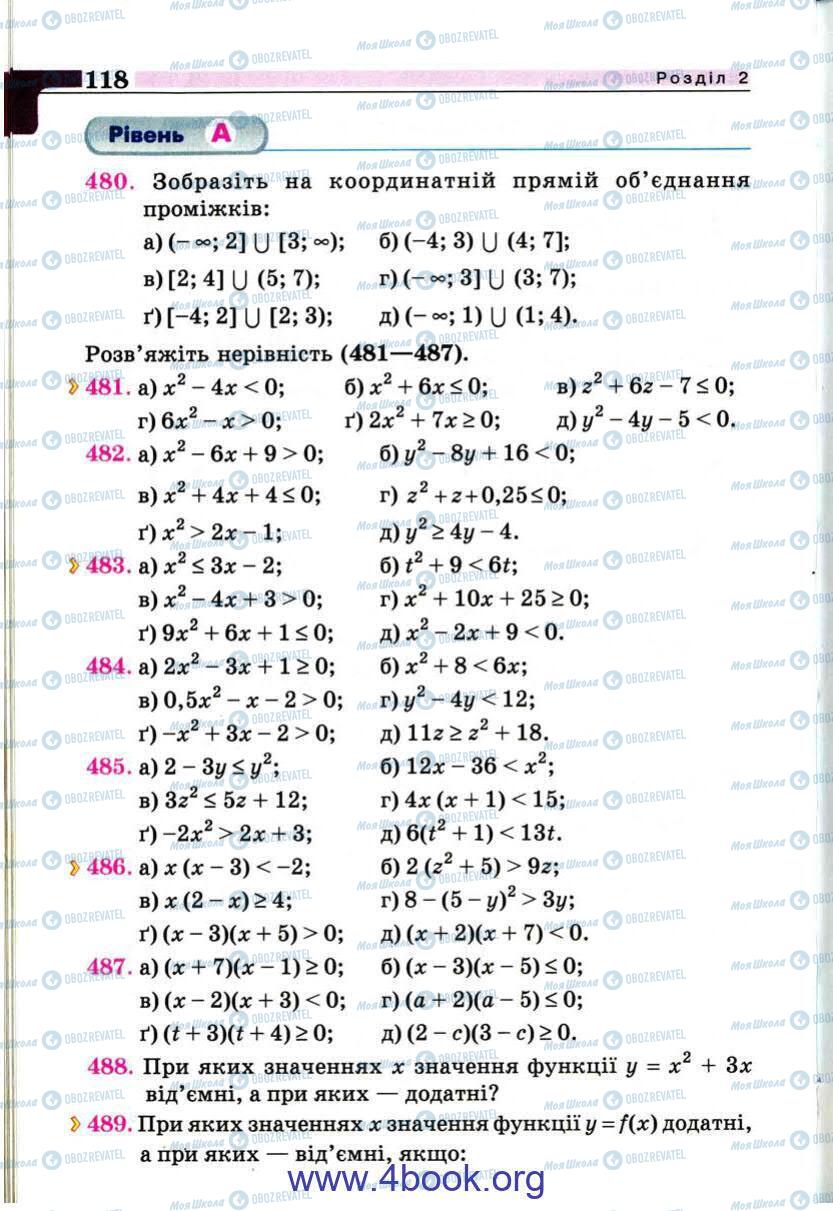 118 Розділ 2
Рівень А
480. Зобразіть на координатній прямій об’єднання
проміжків:
а) (– ∞; 2] ⋃ [3; ∞); б) (–4; 3) ⋃ (4; 7];
в) [2; 4] ⋃ (5; 7); г) (– ∞; 3] ⋃ (3; 7);
ґ) [–4; 2] ⋃ [2; 3); д) (– ∞; 1) ⋃ (1; 4).
Розв’яжіть нерівність (481—487).
481. а) x² – 4x < 0; б) x² + 6x ≤ 0; в) z² + 6z – 7 ≤ 0;
г) 6x² – x > 0; ґ) 2x² + 7x ≥ 0; д) y² – 4y – 5 < 0.
482. а) x² – 6x + 9 > 0; б) y² – 8y + 16 < 0;
в) x² + 4x + 4 ≤ 0; г) z² + z + 0,25 ≤ 0;
ґ) x² > 2x – 1; д) y² ≥ 4y – 4.
483. а) x² ≤ 3x – 2; б) t² + 9 < 6t;
в) x² – 4x + 3 > 0; г) x² + 10x + 25 ≥ 0;
ґ) 9x² + 6x + 1 ≤ 0; д) x² – 2x + 9 < 0.
484. а) 2x² – 3x + 1 ≥ 0; б) x² + 8 < 6x;
в) 0,5x² – x – 2 > 0; г) y² – 4y < 12;
ґ) –x² + 3x – 2 > 0; д) 11z ≥ z² + 18.
485. а) 2 – 3y ≤ y²; б) 12x – 36 < x²;
в) 3z² ≤ 5z + 12; г) 4x (x + 1) < 15;
ґ) –2x² > 2x + 3; д) 6(t² + 1) < 13t.
486. а) x (x – 3) < –2; б) 2 (z² + 5) > 9z;
в) x (2 – x) ≥ 4; г) 8 – (5 – y)² > 3y;
ґ) (x – 3)(x + 5) > 0; д) (x + 2)(x + 7) < 0.
487. а) (x + 7)(x – 1) ≥ 0; б) (x – 3)(x – 5) ≤ 0;
в) (x – 2)(x + 3) < 0; г) (a + 2)(a – 5) ≤ 0;
ґ) (t + 3)(t + 4) ≥ 0; д) (2 – c)(3 – c) ≥ 0.
488. При яких значеннях x значення функції y = x² + 3x
від’ємні, а при яких — додатні?
489. При яких значеннях x значення функції y = f(x) додатні,
а при яких — від’ємні, якщо:
www.4book.org